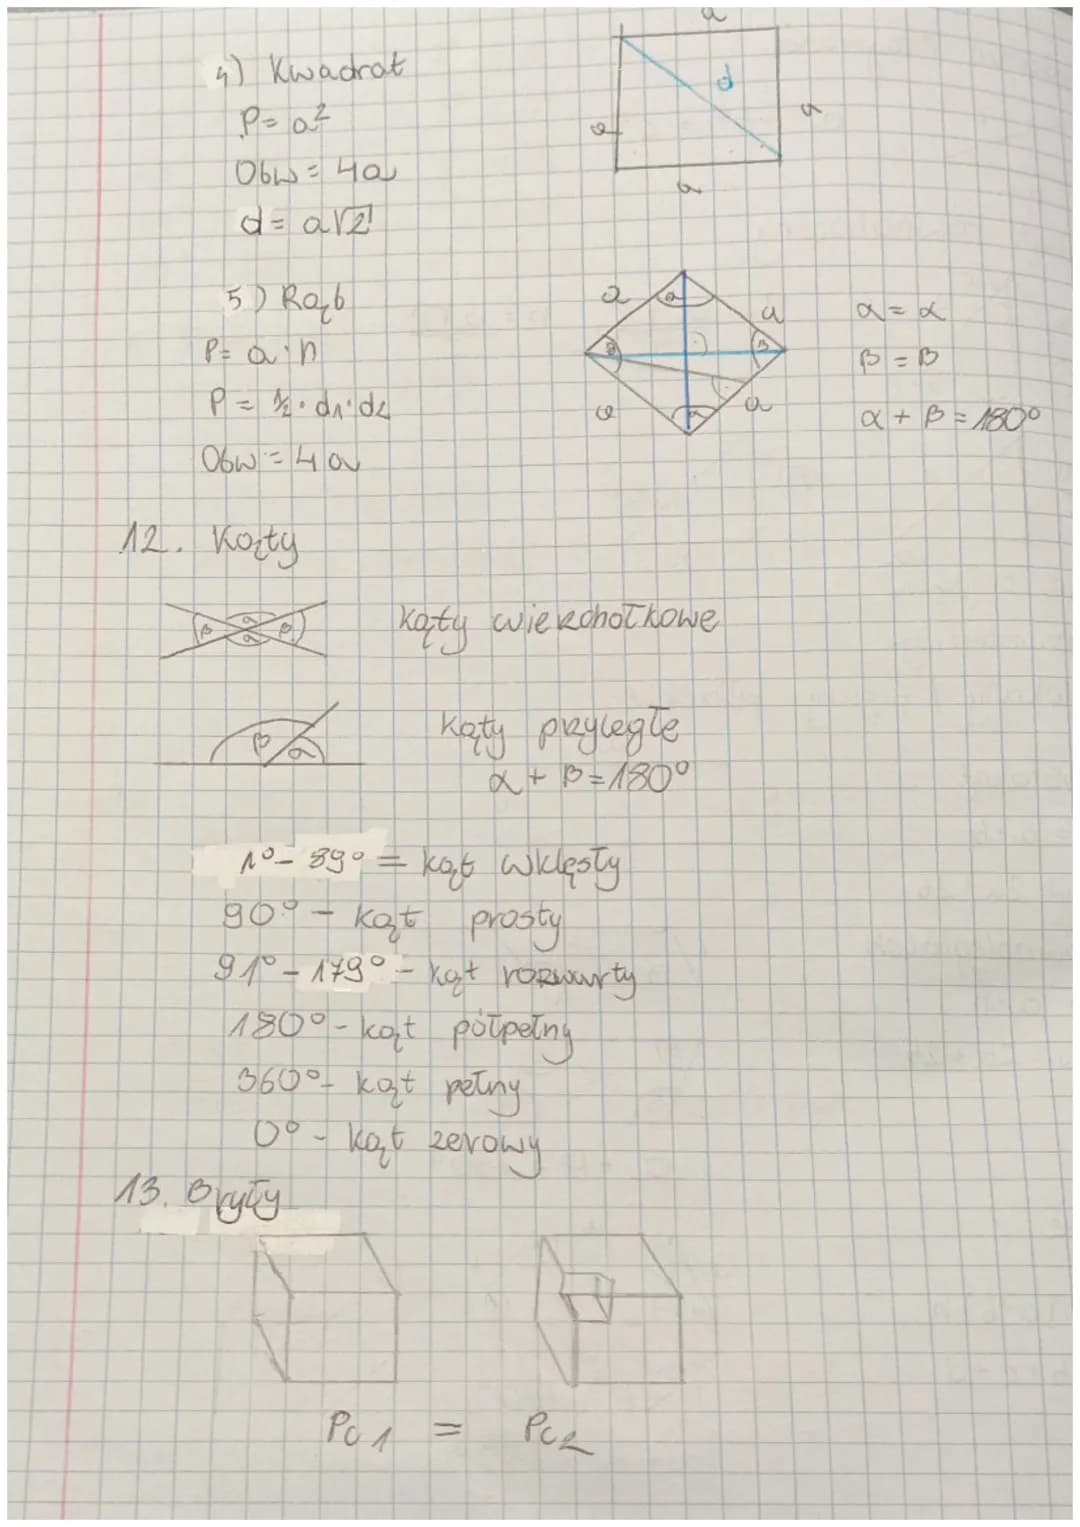 a
4) Kwadrat
d
P= a²
a
a
Obw = 4a
a
d= a√2
5) Rąb
a
α
a
α = α
P= a·h
β
β
β = β
P = ½·d₁·d₂
a
α
a
α + β = 180°
Obw = 4a
12. Kąty
β α β α
kąty wierzchołkowe
β α
kąty przyległe
α + β = 180°
1° - 89° = kąt wklęsły
90° - kąt prosty
91° - 179° - kąt rozwarty
180° - kąt półpełny
360° - kąt pełny
0° - kąt zerowy
13. Bryły
Pc1 = Pc2